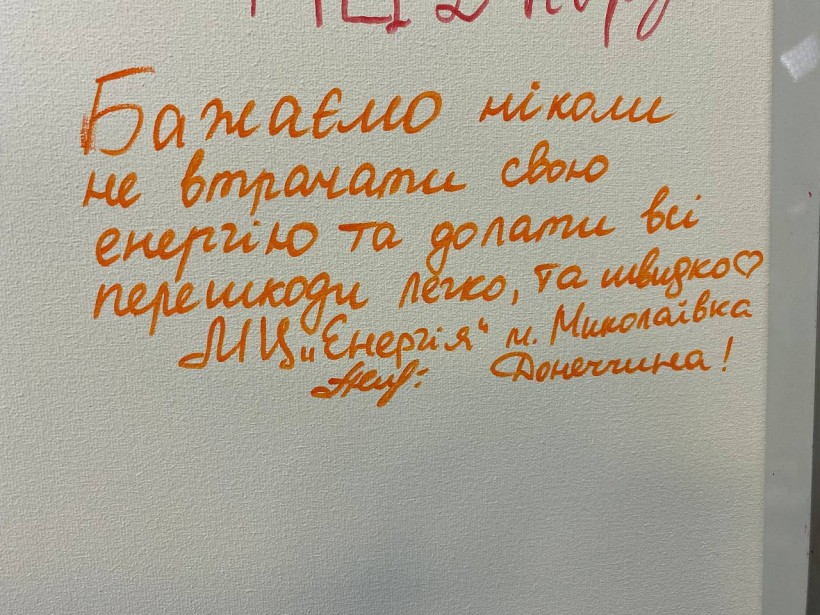 Бажаємо ніколи
не втрачати свою
енергію та долати всі
перешкоди легко, та швидко♡
МЦ „Єнергія“ м. Миколаївка
Донеччина!